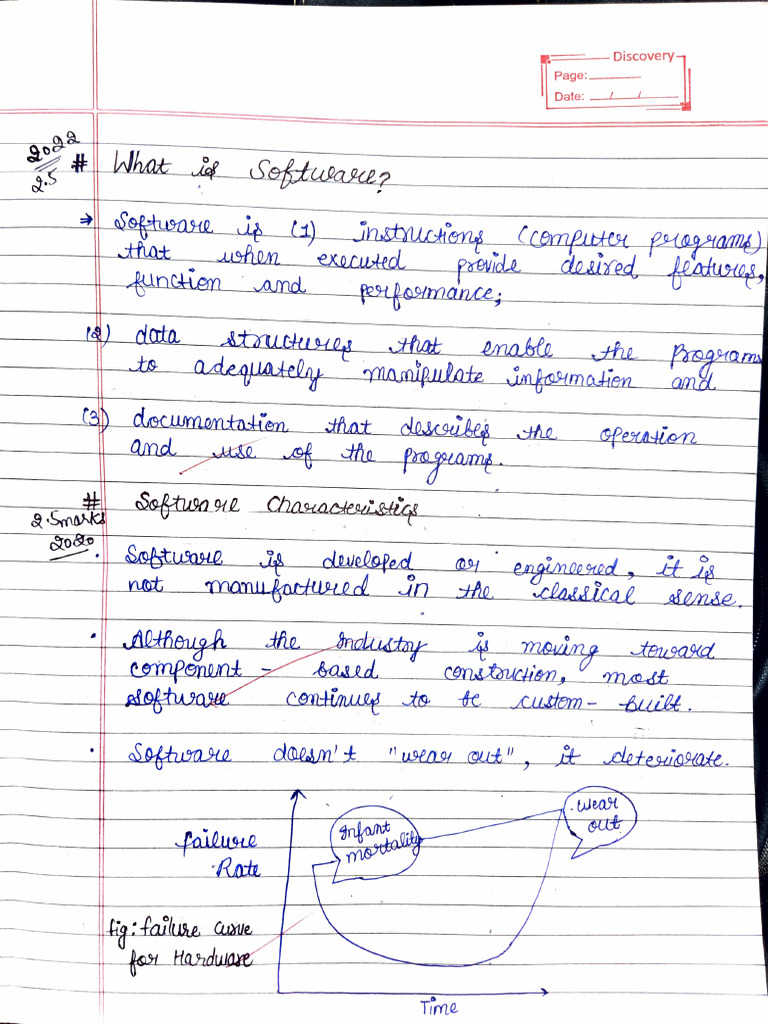 Discovery
Page:
Date: / /
2022
2.5
# What is Software?
→ Software is (1) instructions (computer programs)
that when executed provide desired features,
function and performance;
(2) data structures that enable the programs
to adequately manipulate information and
(3) documentation that describes the operation
and use of the programs.
# Software Characteristics
2.5marks
2020
• Software is developed or engineered, it is
not manufactured in the classical sense.
• Although the industry is moving toward
component - based construction, most
software continues to be custom-built.
• Software doesn't "wear out", it deteriorate.
Failure
Rate
Infant
mortality
wear
out
fig: failure curve
for Hardware
Time